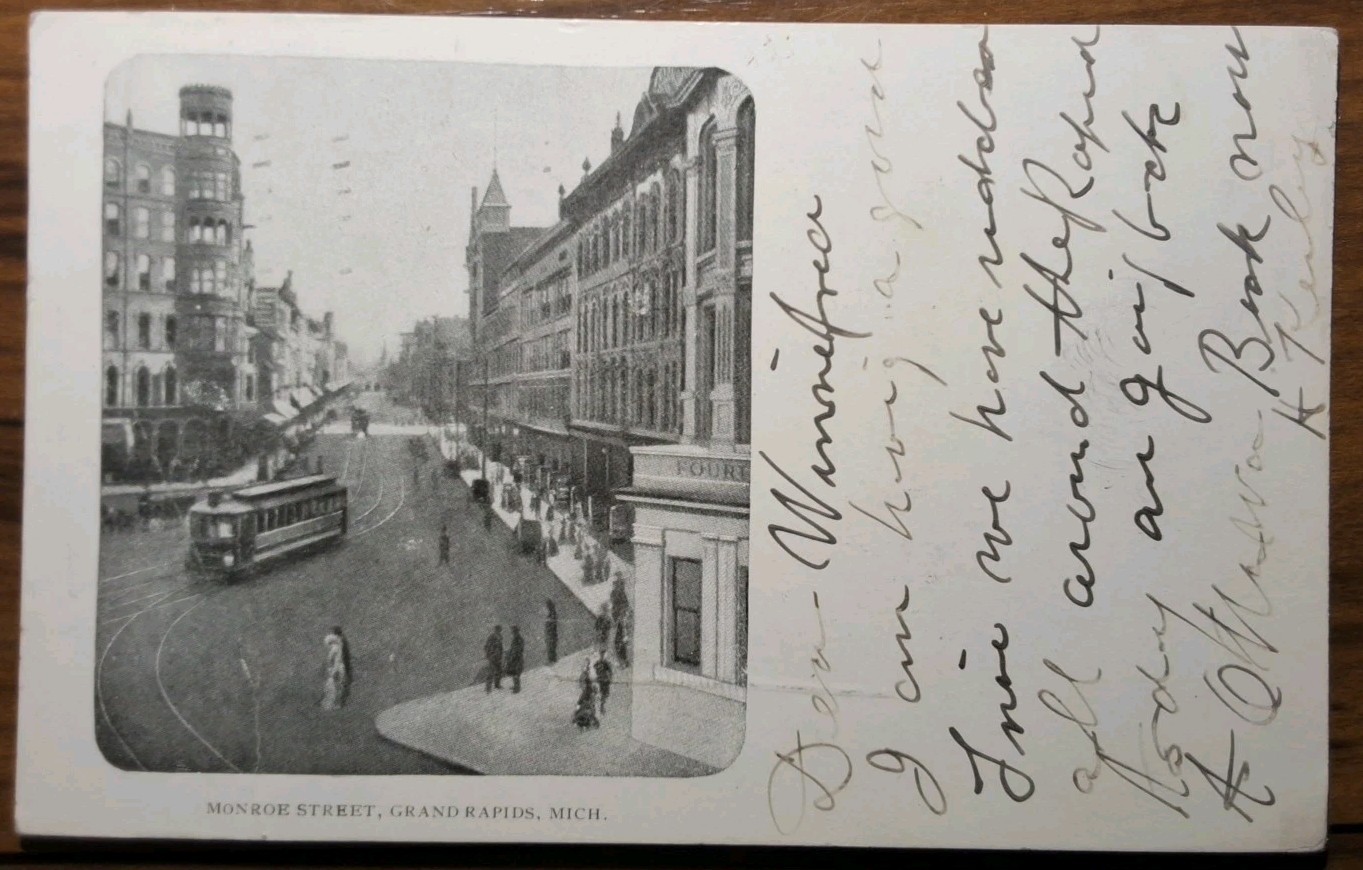 FOURT
MONROE STREET, GRAND RAPIDS, MICH.
Dear Winnefred
I am having a good
Time we have
all around the Rapid
today an going back
to Ottawa Beach now
H